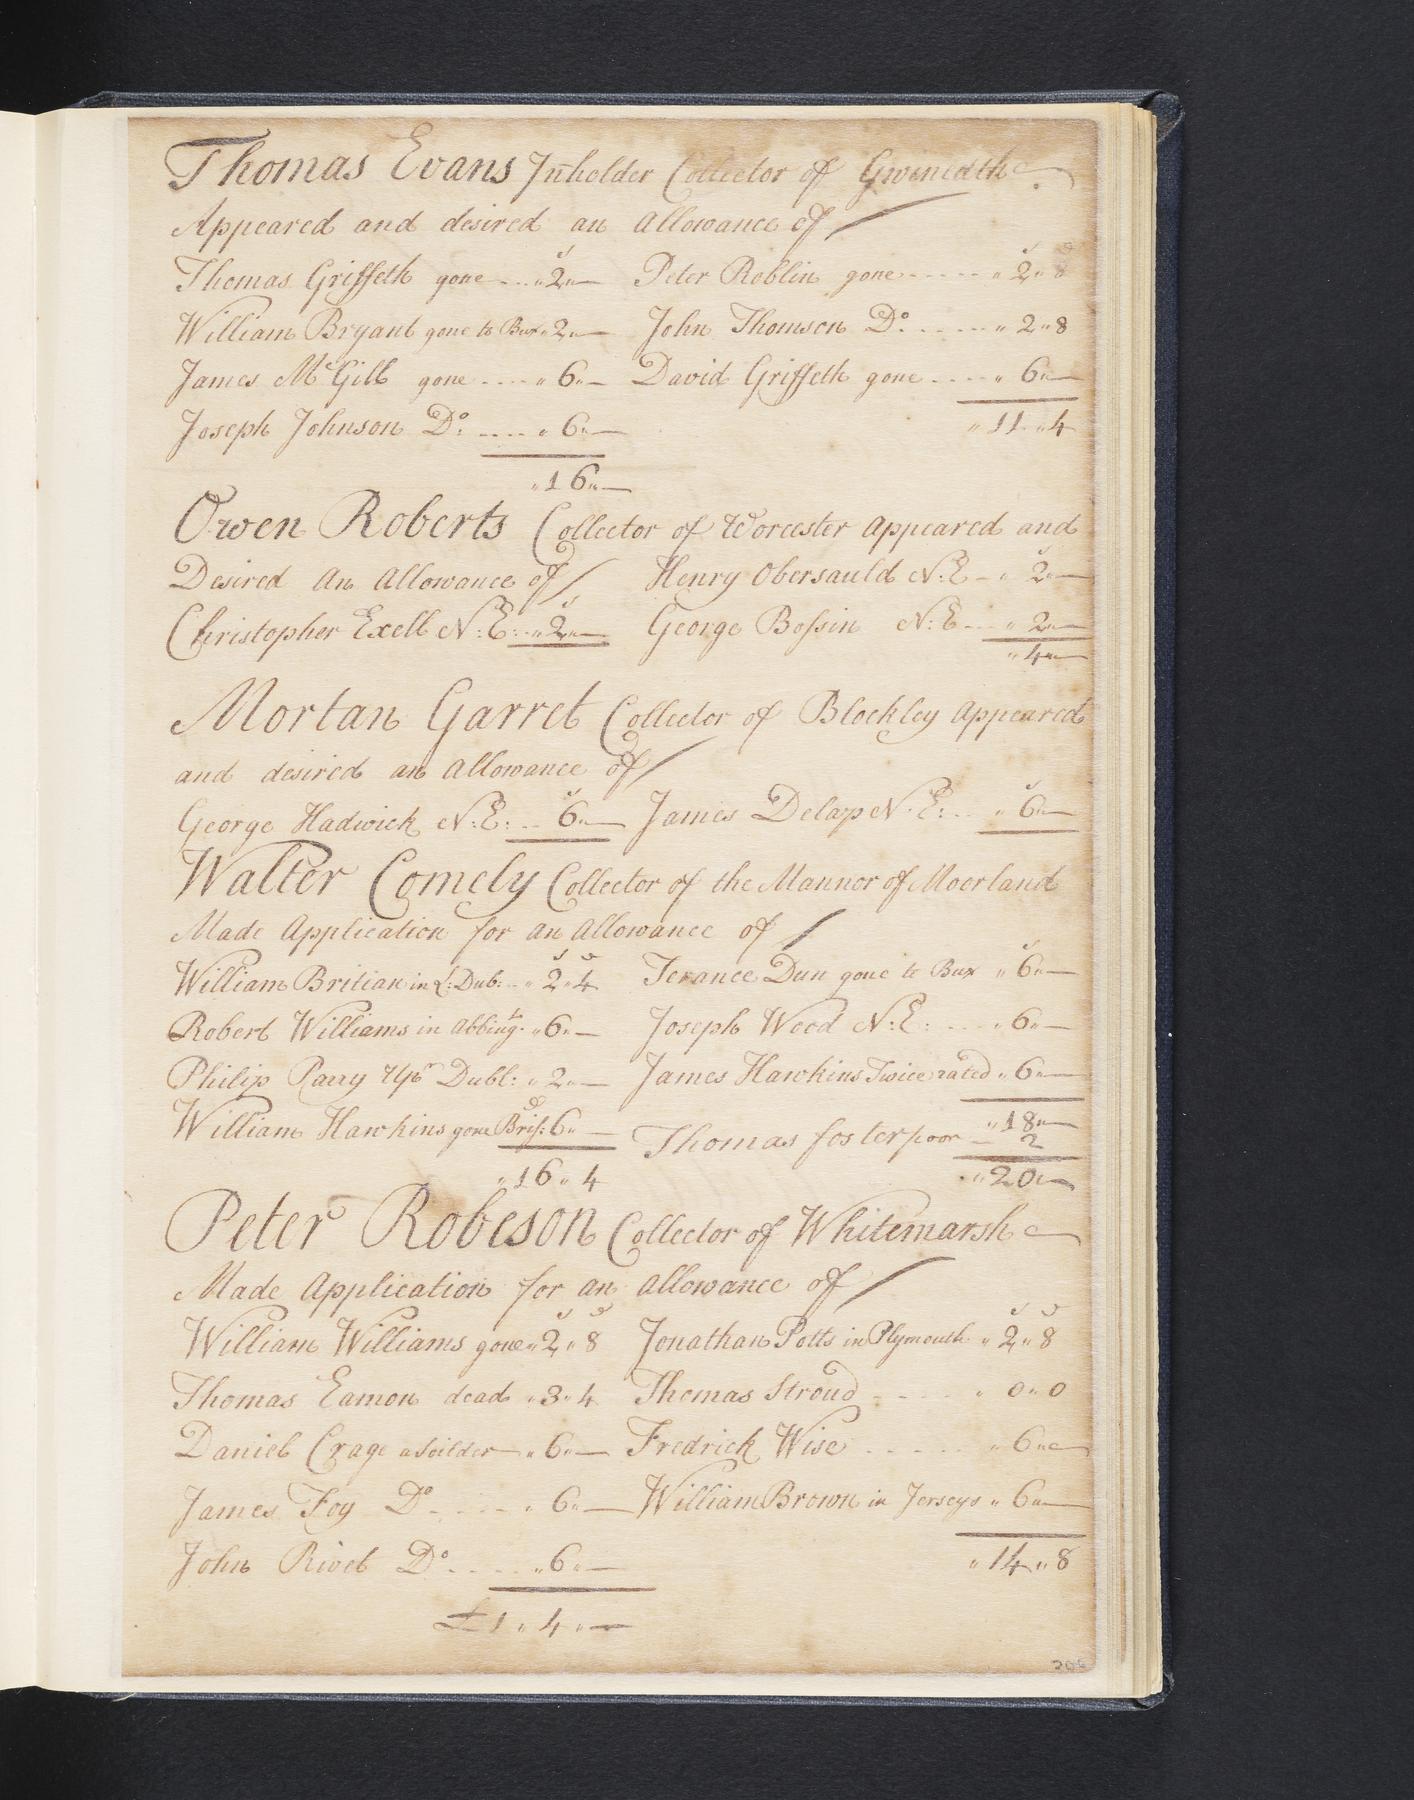 Thomas Evans Jn̄holder Collector of Gwinedth
Appeared and desired an allowance of
Thomas Griffeth gone .... „ 2 „ — Peter Roblin gone ..... „ 2 „ 8
William Bryant gone to Bux „ 2 „ — John Thomson Do. ..... „ 2 „ 8
James McGill gone .... „ 6 „ — David Griffeth gone .... „ 6 „ —
Joseph Johnson Do: .... „ 6 „ — „ 11 „ 4
„ 16 „ —
Owen Roberts Collector of Worcester appeared and
Desired an allowance of Henry Obersauld N:E — „ 2 „ —
Christopher Exell N:E: .. „ 2 „ — George Boſsin N:E — „ 2 „ —
„ 4 „ —
Mortan Garret Collector of Blockley appeared
and desired an allowance of
George Hadwick N:E: .. 6 „ — James Delap N:E: .. „ 6 „ —
Walter Comely Collector of the Mannor of Moorland
Made application for an allowance of
William Britian in L: Dub: .. „ 2 „ 4 Terance Dun gone to Bux „ 6 „ —
Robert Williams in abbingtn. „ 6 „ — Joseph Wood N:E: .... „ 6 „ —
Philip Parry Dubl: „ 2 „ — James Hawkins Twice rated „ 6 „ —
William Hawkins gone 6 „ — „ 18 „ —
Thomas foster poor — 2
„ 16 „ 4 „ 20 „ —
Peter Robeson Collector of Whitemarsh
Made application for an allowance of
William Williams gone „ 2 „ 8 Jonathan Potts in Plymouth „ 2 „ 8
Thomas Eamon dead „ 3 „ 4 Thomas Stroud .... „ 0 „ 0
Daniel Crage a Soilder — „ 6 „ — Fredrick Wise ..... „ 6 „ —
James Foy Do ..... „ 6 „ — William Brown in Jerseys „ 6 „ —
John Rivel Do .... „ 6 „ — „ 14 „ 8
£1 „ 4 „ —